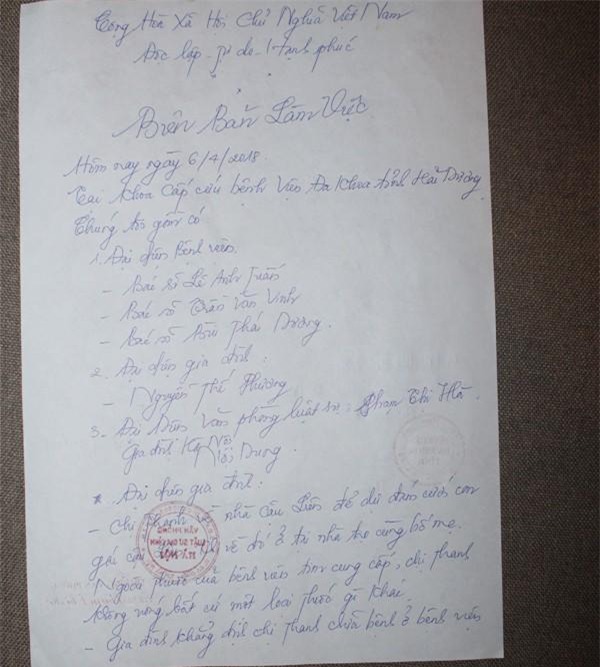 Cộng Hòa Xã Hội Chủ Nghĩa Việt Nam
Độc lập - Tự do - Hạnh phúc
Biên Bản Làm Việc
Hôm nay ngày 6/4/2018.
Tại khoa Cấp cứu bệnh Viện Đa khoa tỉnh Hải Dương
Chúng tôi gồm có
1. Đại diện bệnh viện.
- Bác sĩ Lê Anh Tuấn
- Bác sĩ Trần Văn Vinh
- Bác sĩ Bùi Thái Dương.
2. Đại diện gia đình:
- Nguyễn Thế Phương
3. Đại Diện Văn phòng luật sư: Phạm Thị Hà.
Gia đình Nội Dung
* Đại diện gia đình:
- Chị Thanh nhà cậu Liên để dự đám cưới con
gái cậu về đó ở tại nhà mẹ cùng bố mẹ.
Ngoài thuốc của bệnh viện tim cung cấp, chị Thanh
không uống bất cứ một loại thuốc gì khác.
- Gia đình khẳng định chị Thanh chữa bệnh ở bệnh viện